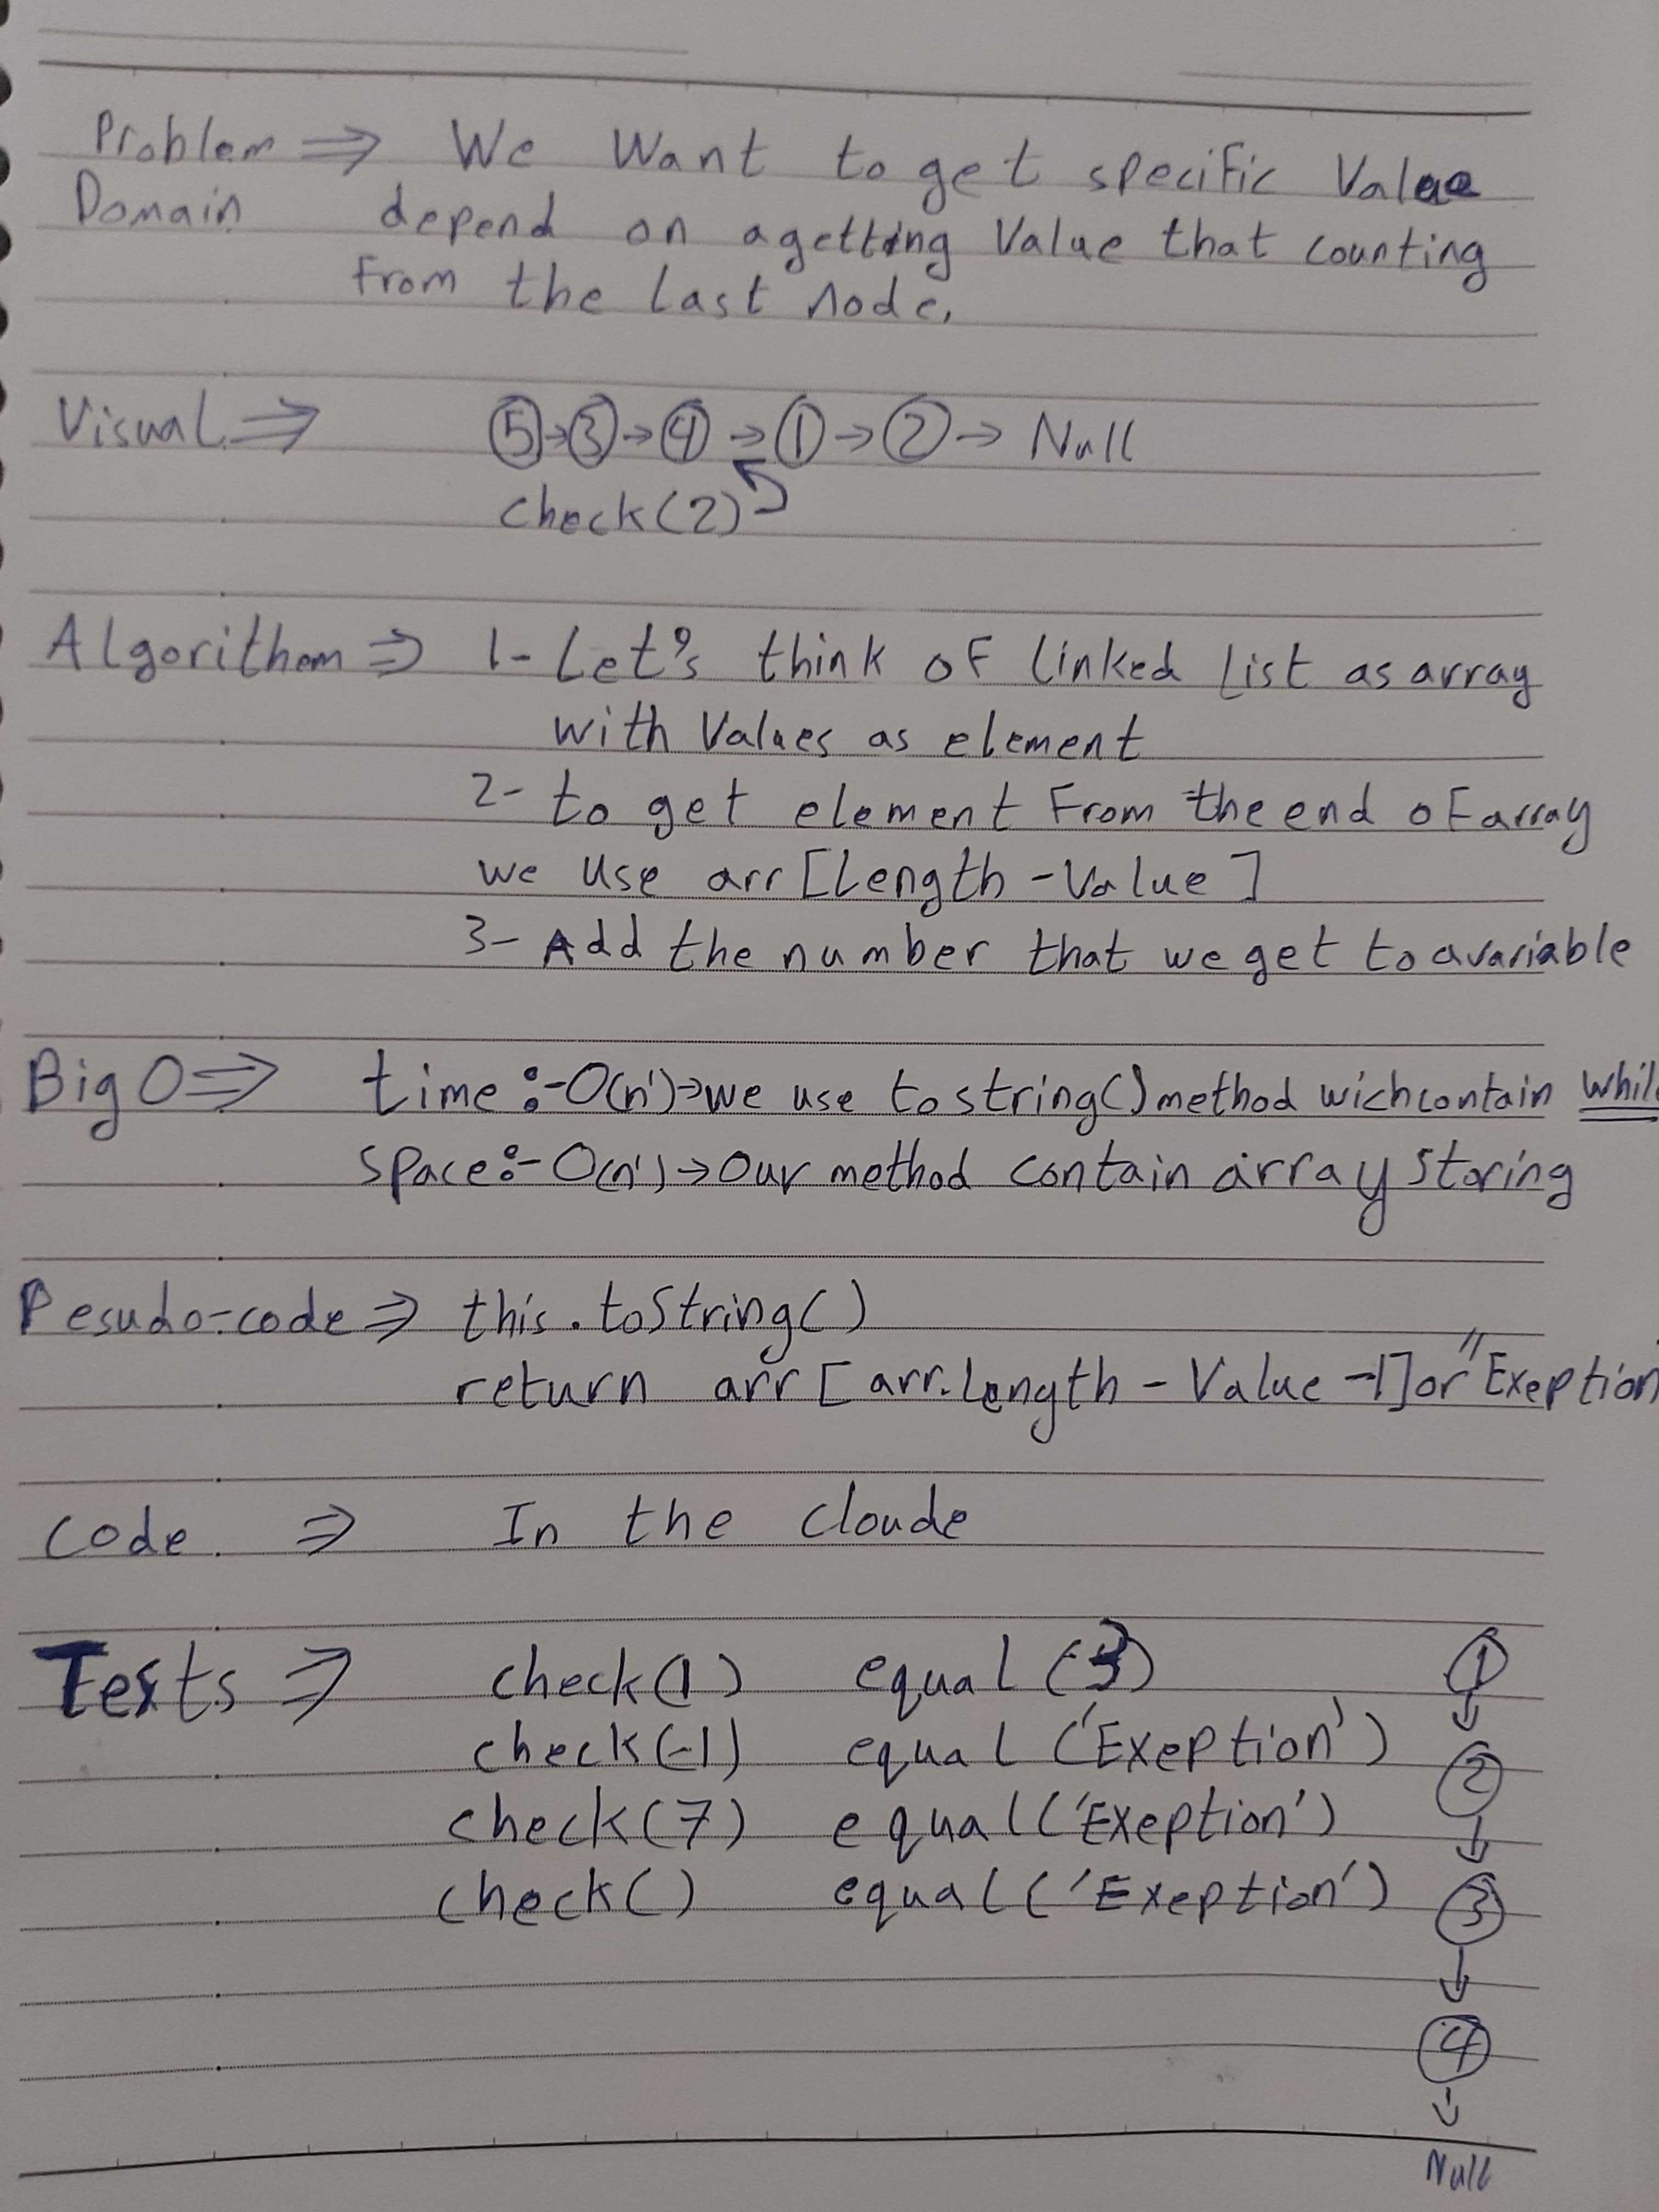 Problem ⇒ We Want to get specific Value
Domain depend on a getting Value that counting
from the last node.
Visual ⇒ 5→3→4→1→2→ Null
check(2)
Algorithom ⇒ 1- Let's think of linked list as array
with Values as element
2- to get element From the end of array
we use arr[Length-Value]
3- Add the number that we get to a variable
Big O ⇒ time:- O(n')→we use tostring() method wich contain
space:- O(n')→Our method contain array storing
Pesudo-code ⇒ this.toString()
return arr[arr.length - Value -1] or "Exeption
code ⇒ In the cloude
Tests ⇒ check(1) equal (3) 1
check(-1) equal ('Exeption') ↓
check(7) equal('Exeption') 2
check() equal('Exeption') ↓
3
↓
4
↓
Null